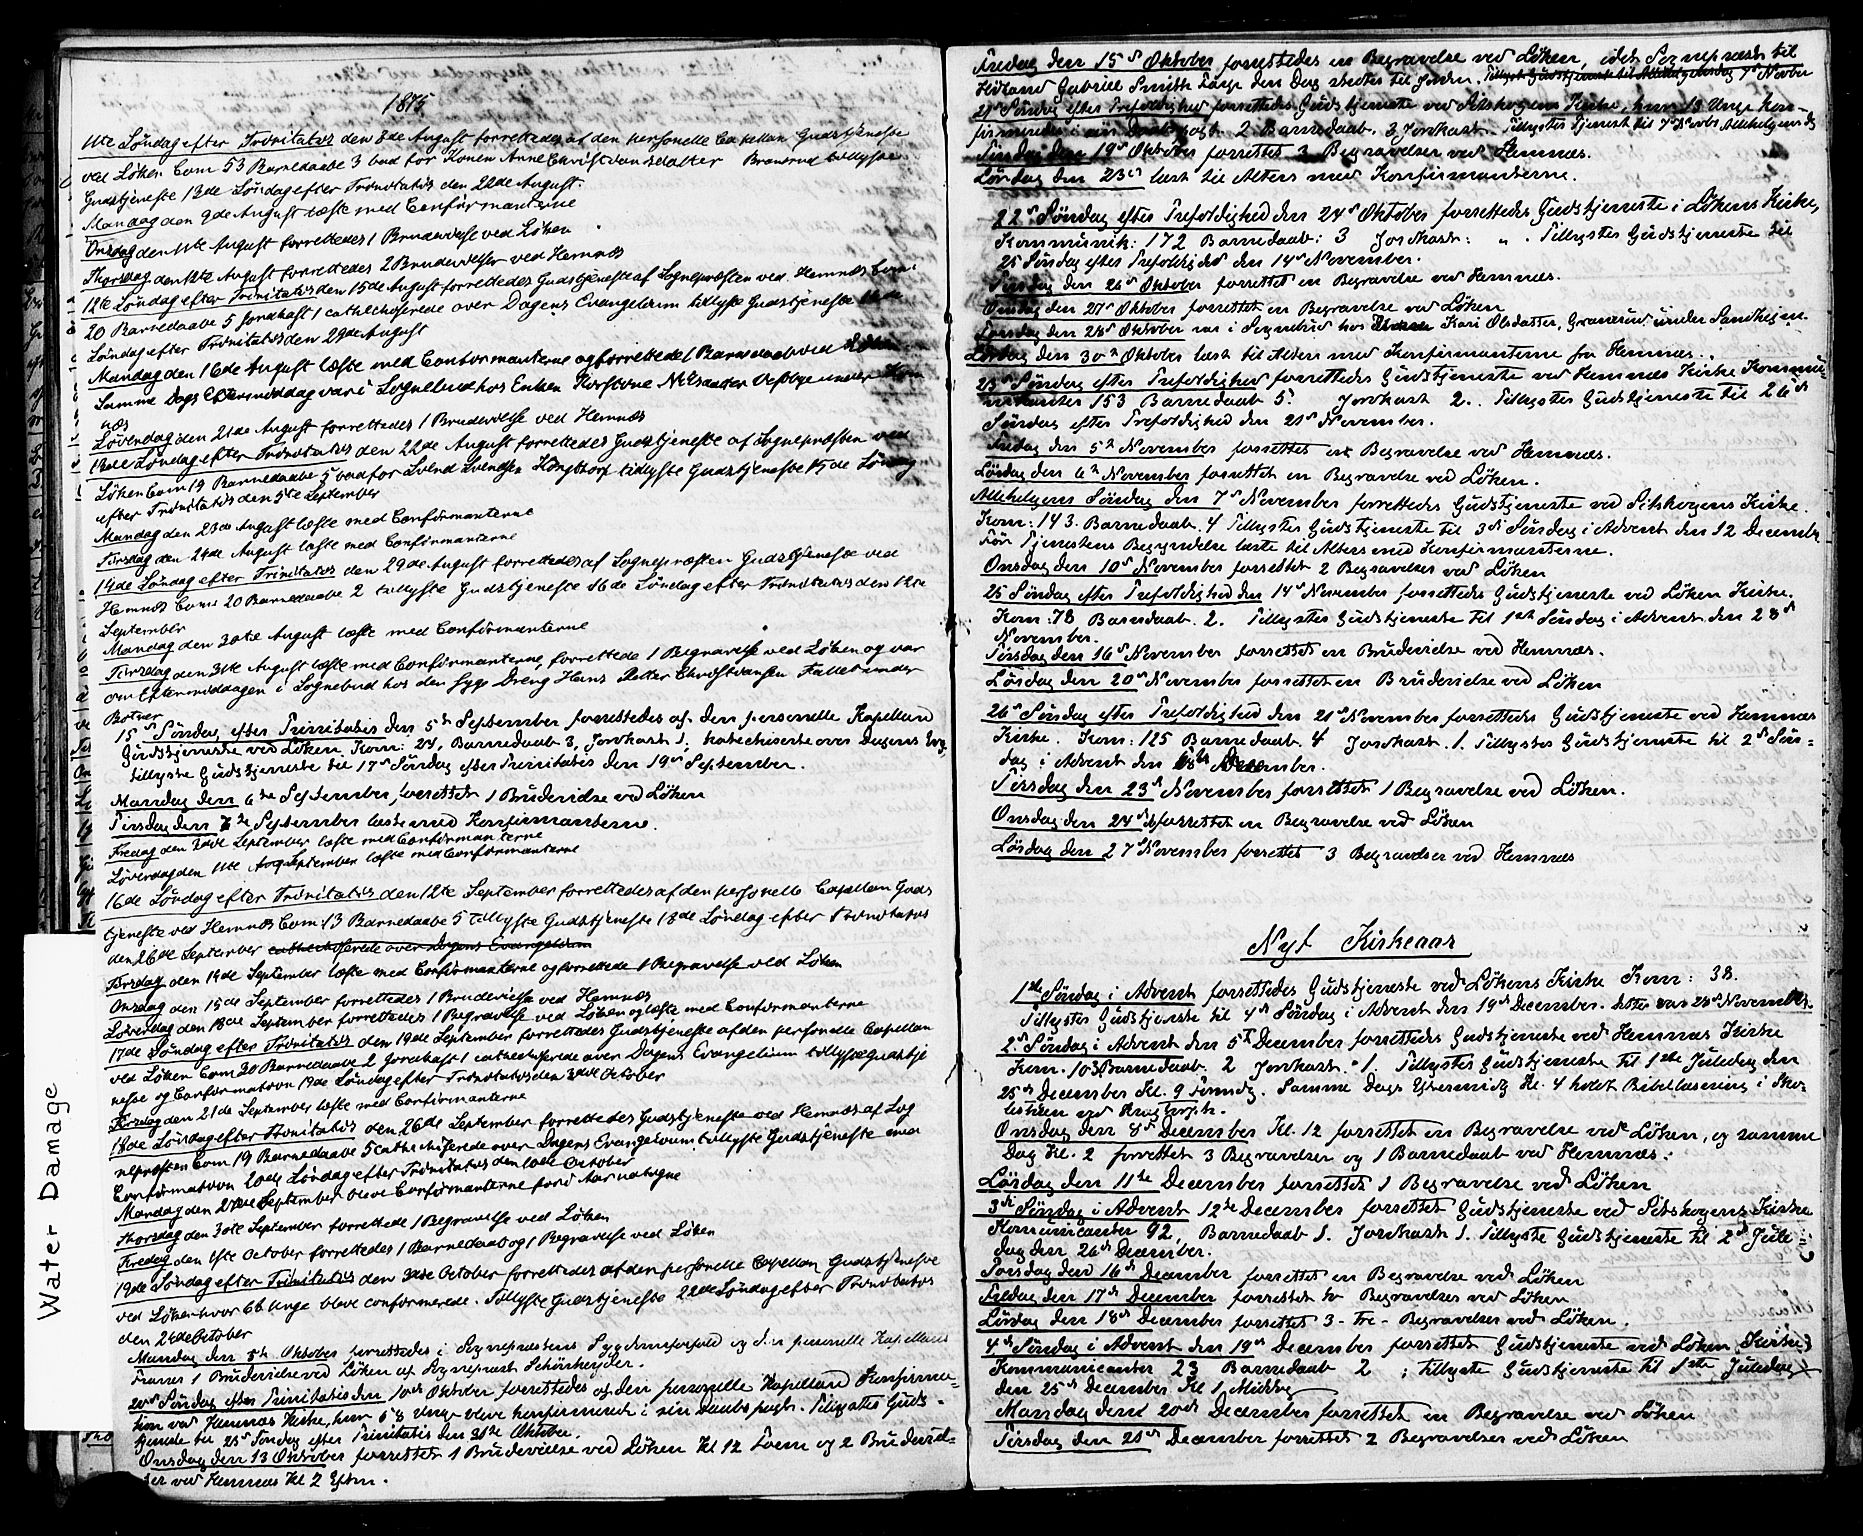 1875
11te Søndag efter Trinitatis den 8de August forrettedes af den personelle Capellan Gudstjeneste
ved Løken Com 53 Barnedaabe 3 bad for Konen Anne Christiansdatter tillyste
Gudstjeneste 13de Søndag efter Trinitatis den 22de August.
Mandag den 9de August læste med Confirmanterne
Onsdag den 11te August forrettedes 1 Brudevielse ved Løken
Thorsdag den 12te August forrettedes 2 Brudevielser ved Hemnæs
12te Søndag efter Trinitatis den 15de August forrettedes Gudstjeneste af Sognepræsten ved Hemnæs Com:
20 Barnedaabe 5 Jordkast 1 cathechiserede over Dagens Evangelium tillyste Gudstjeneste 14de
Søndag efter Trinitatis den 29de August
Mandag den 16de August læste med Confirmanterne og forrettede 1 Barnedaab ved Løken
Samme Dags Eftermiddag var i Sognebud hos Enken Nilsdatter under Hem
næs
Løverdag den 21de August forrettedes 1 Brudevielse ved Hemnæs
13de Søndag efter Trinitatis den 22de August forrettedes Gudstjeneste af Sognepræsten ved
Løken Com 19 Barnedaabe 5 bad for Svend Svendsen tillyste Gudstjeneste 15de Søndag
efter Trinitatis den 5te September
Mandag den 23de August læste med Confirmanterne
Tirsdag den 24de August læste med Confirmanterne
14de Søndag efter Trinitatis den 29de August forrettedes af Sognepræsten Gudstjeneste ved
Hemnæs Com: 20 Barnedaabe 2 tillyste Gudstjeneste 16de Søndag efter Trinitatis den 12te
September
Mandag den 30te August læste med Confirmanterne
Tirsdag den 31te August læste med Confirmanterne, forrettede 1 Begravelse ved Løken og var
om Eftermiddagen i Sognebud hos den syge Dreng Hans Petter Christiansen Fallet under
Botner
15de Søndag efter Trinitatis den 5te September forrettedes af den personelle Kapelland
Gudstjeneste ved Løken Kom: 24, Barnedaab 3, Jordkast 1, katechiserte over Dagens Evg.
tillyste Gudstjeneste til 17de Søndag efter Trinitatis den 19de September.
Mandag den 6te September, forrettet 1 Brudevielse ved Løken
Tirsdag den 7de September læste med Konfirmanterne.
Fredag den 3die September læste med Confirmanterne
Løverdagen 11te September læste med Confirmanterne
16de Søndag efter Trinitatis den 12te September forrettedes af den personelle Capellan Guds
tjeneste ved Hemnæs Com 13 Barnedaabe 5 tillyste Gudstjeneste 18de Søndag efter Trinitatis
den 26de September cathechiserede over Dagens Evangelium
Tirsdag den 14de September læste med Confirmanterne og forrettede 1 Begravelse ved Løken
Onsdag den 15de September forrettedes 1 Brudevielse ved Hemnæs
Løverdag den 18de September forrettedes 1 Begravelse ved Løken og læste med Confirmanterne
17de Søndag efter Trinitatis den 19de September forrettedes Gudstjeneste af den personelle Capellan
ved Løken Com 30 Barnedaabe 2 Jordkast 1 cathechiserede over Dagens Evangelium tillyste Gudstje
neste og Confirmation 19de Søndag efter Trinitatis den 3die October
Tirsdag den 21de September læste med Confirmanterne
18de Søndag efter Trinitatis den 26de September forrettedes Gudstjeneste ved Hemnæs af Sog
nepræsten Com 19 Barnedaabe 5 cathechiserede over Dagens Evangelium tillyste Gudstjeneste med
Confirmation 20de Søndag efter Trinitatis den 10de October
Mandag den 27de September bleve Confirmanterne
Thorsdag den 30te September forrettede 1 Begravelse ved Løken
Fredag den 1ste October forrettedes 1 Barnedaab og 1 Begravelse ved Løken
19de Søndag efter Trinitatis den 3die October forrettedes af den personelle Capellan Gudstjeneste
ved Løken hvor 66 Unge bleve confirmerede. Tillyste Gudstjeneste 22de Søndag efter Trinitatis
den 24de October
Mandag den Oktober forrettedes i Sognepræstens Sygdomsforfald og den personelle Kapellans
1 Brudevielse ved Løken af Sognepræst
20de Søndag efter Trinitatis den 10de Oktober forrettedes af den personelle Kapelland Konfirma-
tion ved Hemnæs Kirke, hvor 58 Unge bleve konfirmerede i sin Daabspagt. Tillystes Guds-
tjeneste til 23de Søndag efter Trinitatis den 31te Oktober.
Onsdag den 13 Oktober forrettet 1 Brudevielse ved Løken Kl 12 Form og 2 Brudeviel-
ser ved Hemnæs Kl 2 Eftm.
Water Damage
Fredag den 15de Oktober forrettedes en Begravelse ved Løken, idet Sognepræst til
Høland Gabriel Smith den Dag stedtes til Jorden. Tillyst Gudstjeneste til Allehelgensdag 7de Novbr
21de Søndag efter Trefoldighed forrettedes Gudstjeneste ved Sitskogens Kirke, hvor 13 Unge kon-
firmeredes i sin Daabspagt. 2 Barnedaab. 3 Jordkast. Tillystes Tjenest til 7de Novbr Allehelgensdg
Tirsdag den 19de Oktober forrettet 3 Begravelser ved Hemnæs.
Lørdag den 23de læst til Alters med Konfirmanterne.
22de Søndag efter Trefoldighed den 24de Oktober forrettedes Gudstjeneste i Løkens Kirke,
Kommunik: 172 Barnedaab: 3 Jordkast: " . Tillystes Gudstjeneste til
25 Søndag efter Trefoldighed den 14de November.
Tirsdag den 26de Oktober forrettet en Begravelse ved Hemnæs.
Onsdag den 27de Oktober forrettet en Begravelse ved Løken
Torsdag den 28de Oktober var i Sognebud hos Kari Olsdatter, under
Lørdag den 30te Oktober læst til Alters med Konfirmanterne fra Hemnæs.
23de Søndag efter Trefoldighed forrettedes Gudstjeneste ved Hemnæs Kirke Kommu-
nikanter 153 Barnedaab 5. Jordkast 2. Tillystes Gudstjeneste til 26de
Søndag efter Trefoldighed den 21de November.
Fredag den 5te November forrettet en Begravelse ved Hemnæs.
Lørdag den 6te November forrettet en Begravelse ved Løken.
Allehelgens Søndag den 7de November forrettedes Gudstjeneste ved Sitskogens Kirke.
Kom: 143. Barnedaab. 4 Tillystes Gudstjeneste til 3die Søndag i Advent den 12 Decembr.
Før Tjenestens Begyndelse læste til Alters med Konfirmanterne.
Onsdag den 10de November forrettet 2 Begravelser ved Løken
25 Søndag efter Trefoldighed den 14de November forrettedes Gudstjeneste ved Løken Kirke.
Kom: 78 Barnedaab. 2. Tillystes Gudstjeneste til 1ste Søndag i Advent den 28de
November.
Tirsdag den 16de November forrettet en Brudevielse ved Hemnæs.
Lørdag den 20de November forrettet en Brudevielse ved Løken
26de Søndag efter Trefoldighed den 21de November forrettedes Gudstjeneste ved Hemnæs
Kirke. Kom: 125 Barnedaab. 4 Jordkast. 1. Tillystes Gudstjeneste til 2de Søn-
dag i Advent den December.
Tirsdag den 23de November forrettet 1 Begravelse ved Løken.
Onsdag den 24de forrettet en Begravelse ved Løken
Lørdag den 27de November forrettet 3 Begravelser ved Hemnæs
Nyt Kirkeaar
1ste Søndag i Advent forrettedes Gudstjeneste ved Løkens Kirke Kom: 38.
Tillystes Gudstjeneste til 4de Søndag i Advent den 19de December. Dette var 28de November.
2den Søndag i Advent den 5te December forrettedes Gudstjeneste ved Hemnæs Kirke
Kom. 103 Barnedaab. 2 Jordkast. 1. Tillystes Gudstjeneste til 1ste Juledag den
25de December Kl. 9 Formdg. Samme Dags Eftermidg Kl. 4 holdt Bibellæsning i Sko-
lestuen ved
Onsdag den 8de December Kl. 12 forrettet en Begravelse ved Løken, og samme
Dag Kl. 2 forrettet 3 Begravelser og 1 Barnedaab ved Hemnæs.
Lørdag den 11te December forrettet 1 Begravelse ved Løken
3die Søndag i Advent 12te December forrettet Gudstjeneste ved Sitskogens Kirke
Komunicanter 92, Barnedaab 1. Jordkast 1. Tillyste Gudstjeneste til 2den Jule-
dag den 26de December.
Torsdag den 16de December forrettet en Begravelse ved Løken
Fredag den 17de December forrettet to Begravelser ved Løken
Lørdag den 18de December forrettet 3 - tre - Begravelser ved Løken.
4de Søndag i Advent den 19de December forrettet Gudstjeneste ved Løken Kirke
Kommunicanter 23 Barnedaab 2 ; tillyste Gudstjeneste til 1ste Juledag
den 25de December Kl 1 Middag
Mandag den 20de December forrettet en Begravelse ved Løken
Tirsdag den 21de December forrettet 2 Begravelser ved Løken